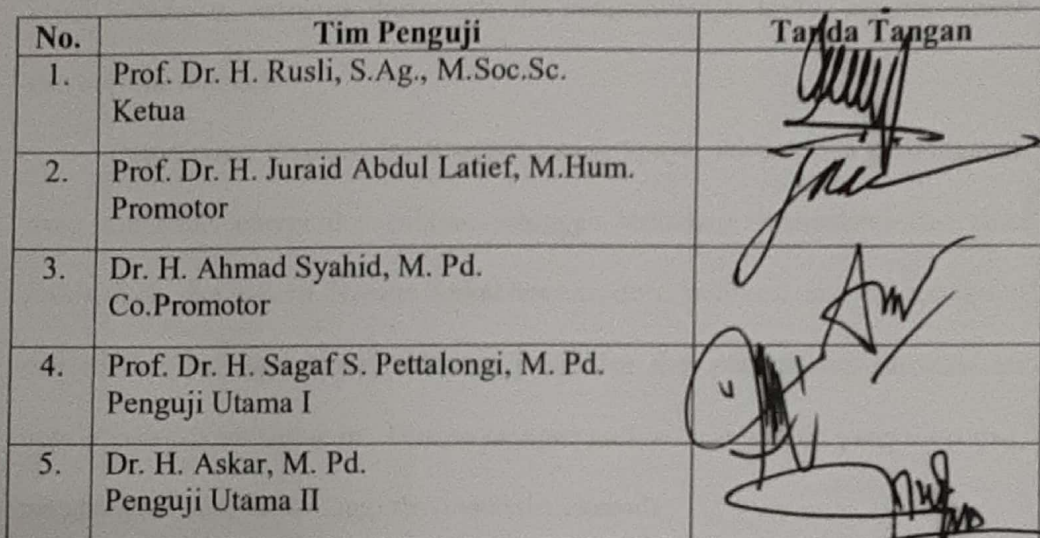 No. Tim Penguji Tanda Tangan
1. Prof. Dr. H. Rusli, S.Ag., M.Soc.Sc.
Ketua
2. Prof. Dr. H. Juraid Abdul Latief, M.Hum.
Promotor
3. Dr. H. Ahmad Syahid, M. Pd.
Co.Promotor
4. Prof. Dr. H. Sagaf S. Pettalongi, M. Pd.
Penguji Utama I
5. Dr. H. Askar, M. Pd.
Penguji Utama II